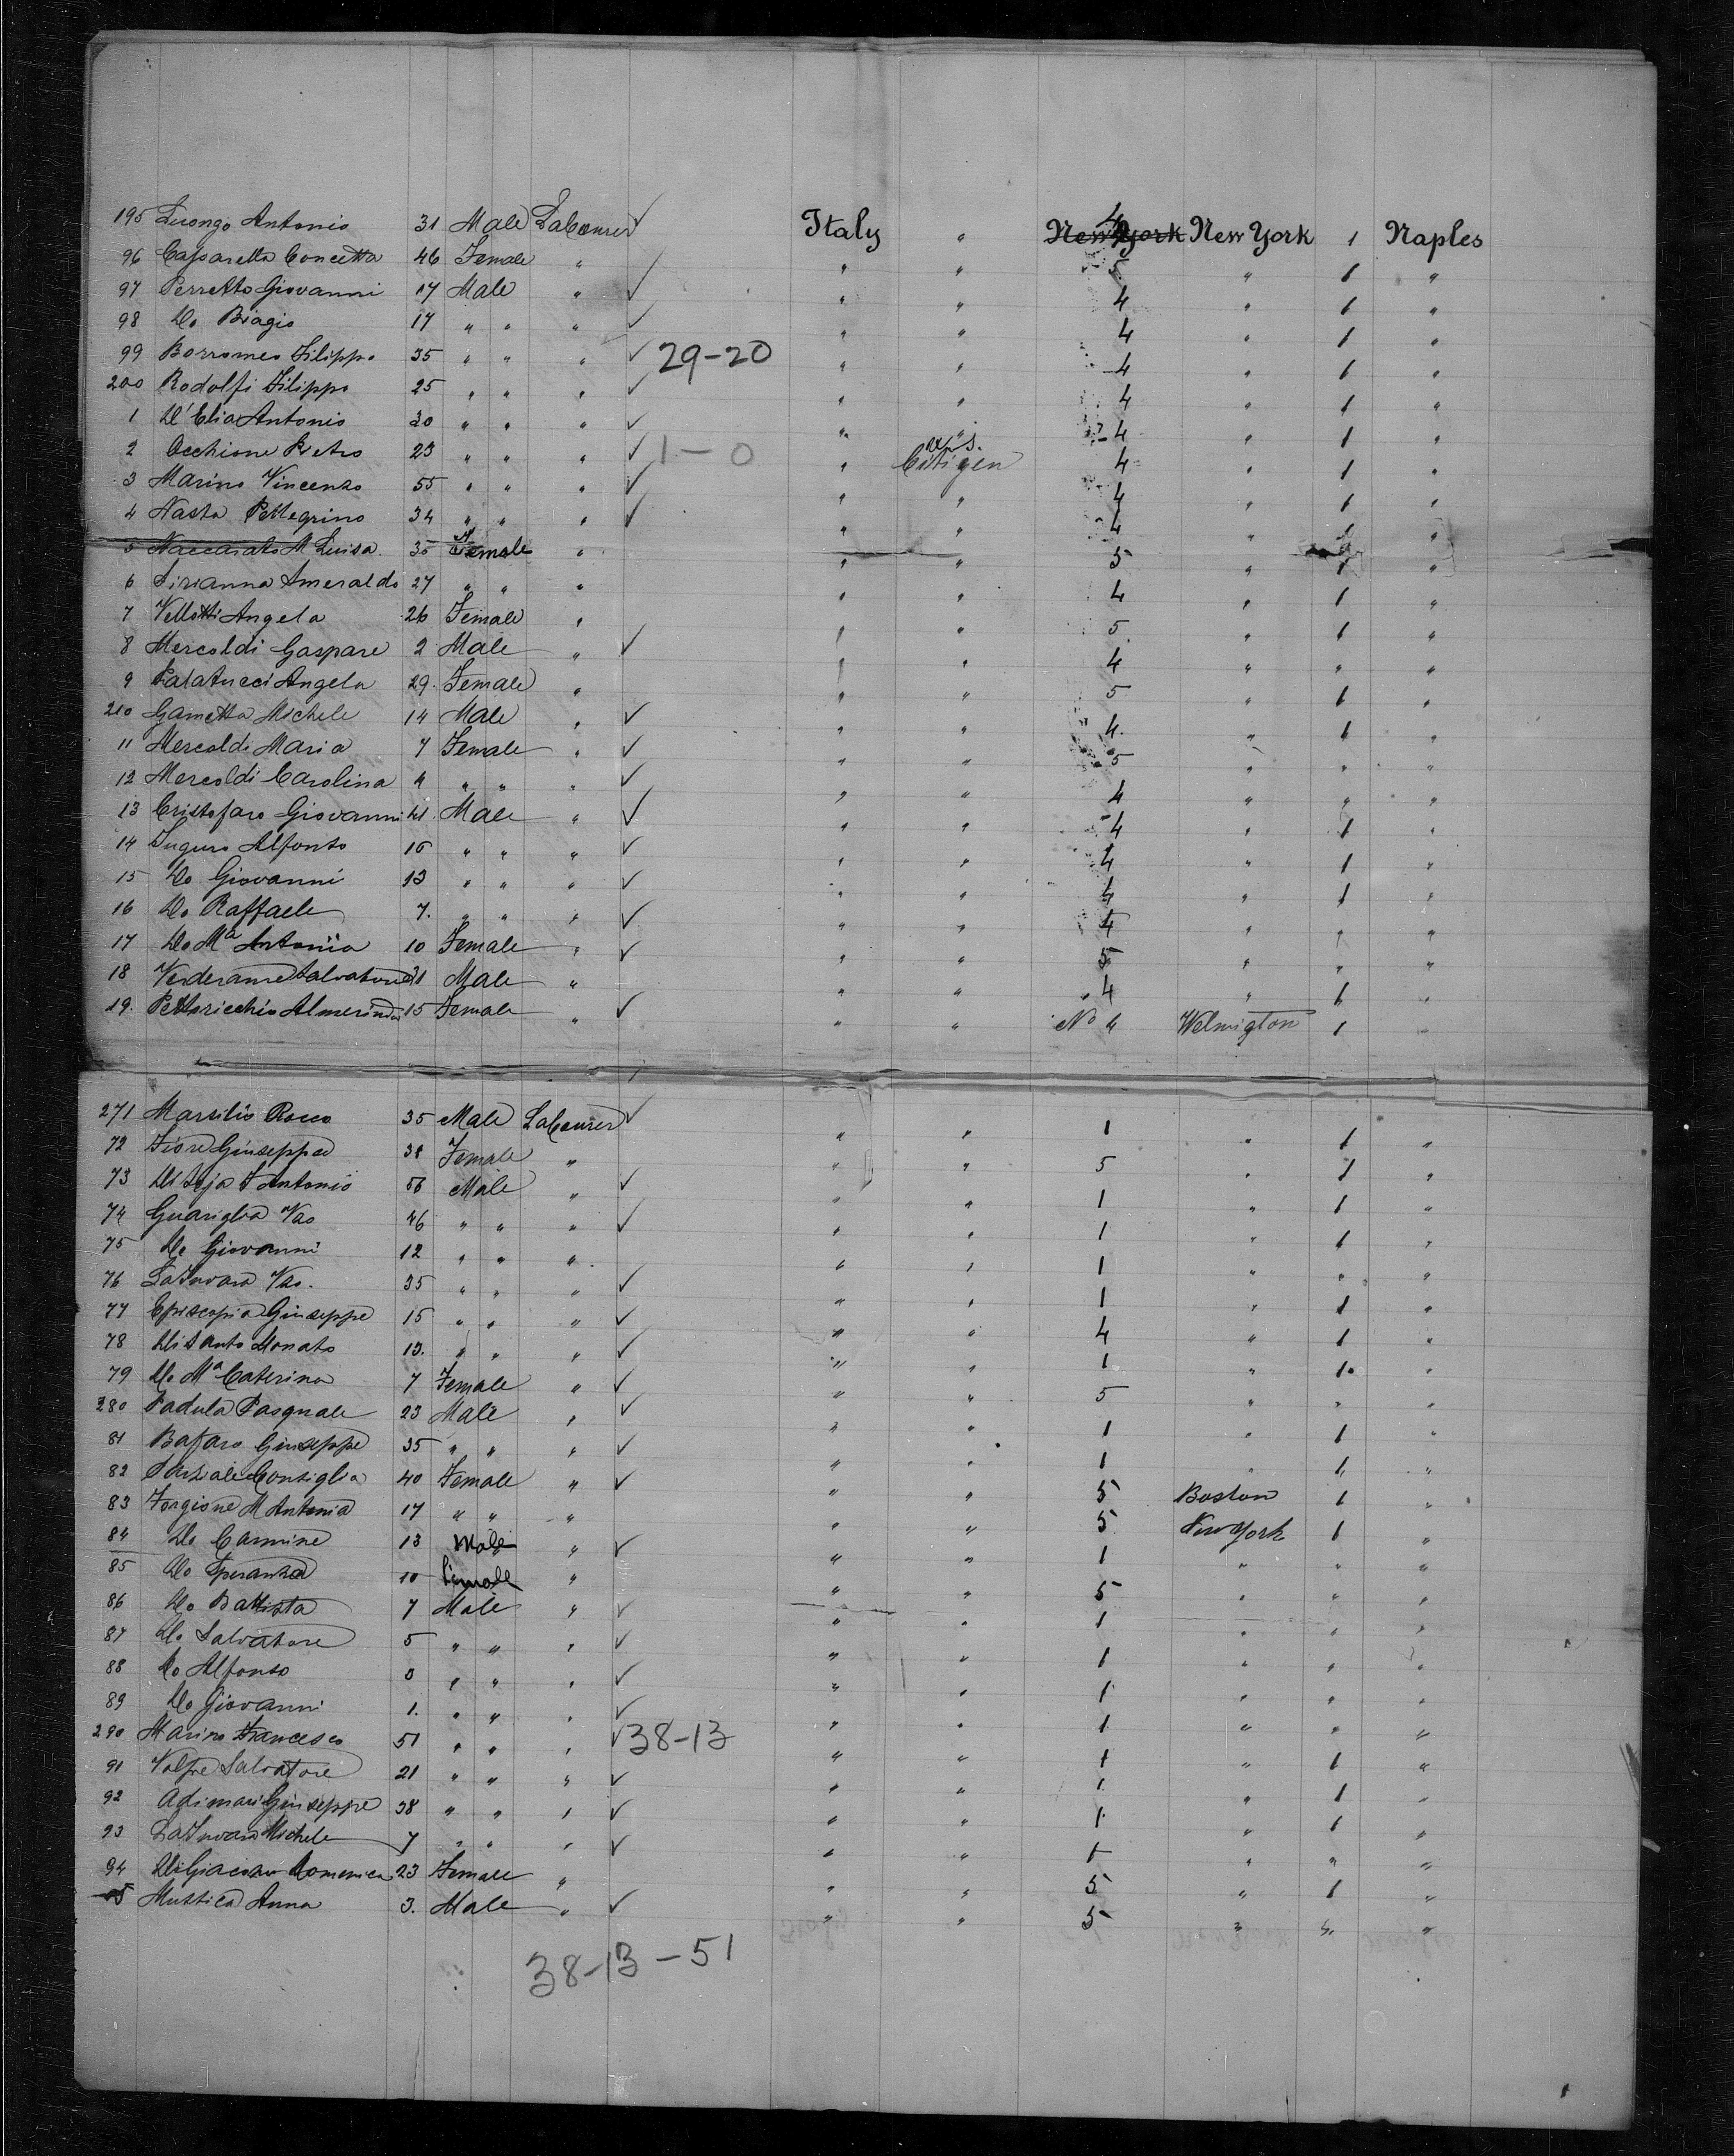 195 Luongo Antonio 31 Male Labourer ✓ Italy " 4 New York New York 1 Naples
96 Cassaretta Concetta 46 Female " ✓ " " 5 " 1 "
97 Perretto Giovanni 17 Male " ✓ " " 4 " 1 "
98 Do Biagio 17 " " " ✓ " " 4 " 1 "
99 Borromeo Filippo 35 " " " ✓ 29-20 " " 4 " 1 "
200 Rodolfi Filippo 25 " " " ✓ " " 4 " 1 "
1 D'Elia Antonio 30 " " " ✓ " " 4 " 1 "
2 Occhione Pietro 23 " " " ✓ 1-0 " U.S. Citizen 4 " 1 "
3 Marino Vincenzo 55 " " " ✓ " " 4 " 1 "
4 Nasta Pellegrino 34 " " " ✓ " " 4 " 1 "
5 Naccarato M Luisa 35 Female " " " 5 " 1 "
6 Sirianna Smeraldo 27 " " " " " 4 " 1 "
7 Vellotti Angela 26 Female " " " 5 " 1 "
8 Mercoldi Gaspare 2 Male " ✓ " " 4 " " "
9 Palatucci Angela 29 Female " " " 5 " 1 "
210 Gametta Michele 14 Male " ✓ " " 4 " 1 "
11 Mercoldi Maria 7 Female " ✓ " " 5 " " "
12 Mercoldi Carolina 4 " " " ✓ " " 4 " " "
13 Cristofaro Giovanni 41 Male " ✓ " " 4 " 1 "
14 Suguro Alfonso 16 " " " ✓ " " 4 " 1 "
15 Do Giovanni 13 " " " ✓ " " 4 " 1 "
16 Do Raffaele 7 " " " ✓ " " 4 " " "
17 Do Ma Antonia 10 Female " ✓ " " 5 " " "
18 Verderame Salvatore 31 Male " " " 4 " 1 "
19 Pettoricchio Almerinda 15 Female " ✓ " " No 4 Welmigton 1 "
271 Marsilio Rocco 35 Male Labourer ✓ " " 1 " 1 "
72 Fiore Giuseppa 38 Female " " " 5 " 1 "
73 Antonio 56 Male " ✓ " " 1 " 1 "
74 Guariglia Vzo 46 " " " ✓ " " 1 " 1 "
75 Do Giovanni 12 " " " " " 1 " " "
76 Vzo. 35 " " " ✓ " " 1 " 1 "
77 Episcopia Giuseppe 15 " " " ✓ " " 4 " 1 "
78 Di Santo Donato 13 " " " ✓ " " 1 " 1 "
79 Do Ma Caterina 7 Female " ✓ " " 5 " " "
280 Padula Pasquale 23 Male " ✓ " " 1 " 1 "
81 Bafaro Giuseppe 35 " " " ✓ " " 1 " 1 "
82 Consiglia 40 Female " ✓ " " 5 Boston 1 "
83 Forgione M Antonia 17 " " " " " 5 New York 1 "
84 Do Carmine 13 Male " ✓ " " 1 " " "
85 Do Speranza 10 Female " " " 5 " " "
86 Do Battista 7 Male " ✓ " " 1 " " "
87 Do Salvatore 5 " " " ✓ " " 1 " " "
88 Do Alfonso " " " ✓ " " 1 " " "
89 Do Giovanni 1 " " " ✓ " " 1 " " "
290 Marino Francesco 51 " " " ✓ 38-13 " " 1 " 1 "
91 Volpe Salvatore 21 " " " ✓ " " 1 " 1 "
92 Adimari Giuseppe 38 " " " ✓ " " 1 " 1 "
93 Michele 7 " " " ✓ " " 1 " " "
94 Di Giacomo Domenica 23 Female " " " 5 " 1 "
95 Mussica Anna 3 Male " ✓ " " 5 " " "
38-13-51